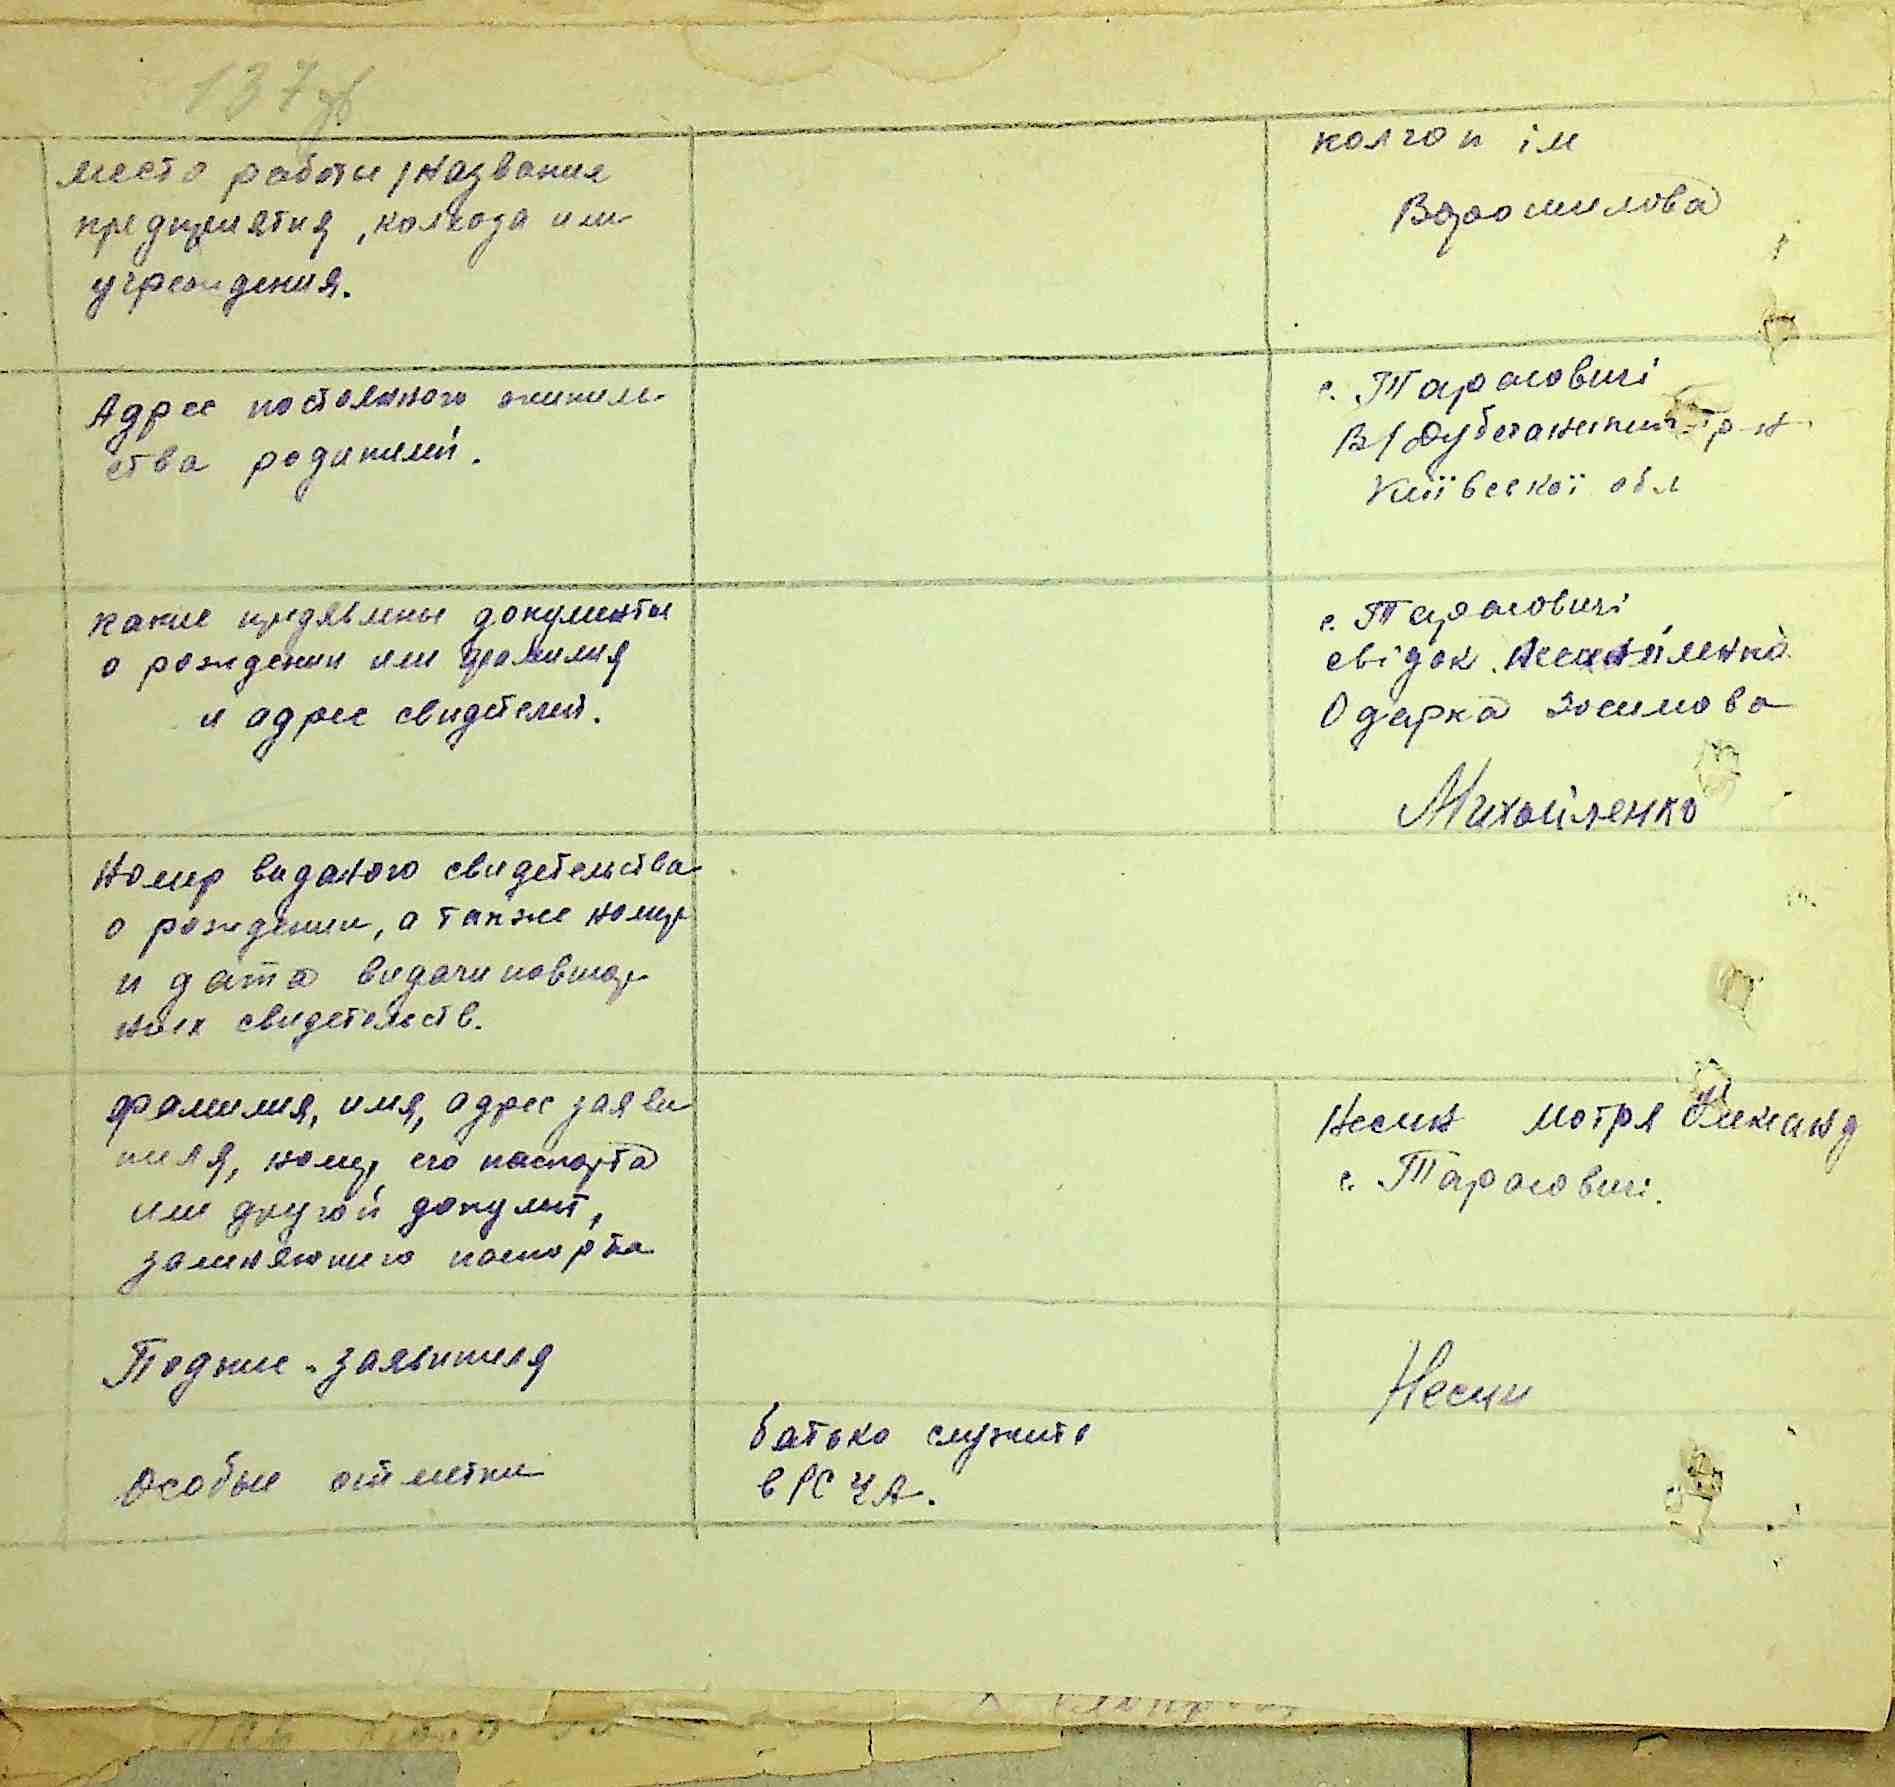 137 зв
место работы /название
предприятия, колхоза или
учреждения.
колгоп ім
Ворошилова
Адрес постоянного житель
ства родителей.
с. Тарасовичі
В/Дубечанський р-н
Київської обл
какие предявлены документы
о рождении или фамилия
и адрес свидетелей.
с. Тарасовичі
свідок
Одарка Зосимова
Михайленко
Номер виданого свидетельства
о рождении, а также номер
и дата видачи повтор
ных свидетельств.
фамилия, имя, адрес заяви
теля, номер его паспорта
или другой докумет,
заменяющего паспорта
Несин Мотря Олександ
с. Тарасовичі.
Подпис заявителя
Несин
Особые отметки
батько служить
в РСЧА.